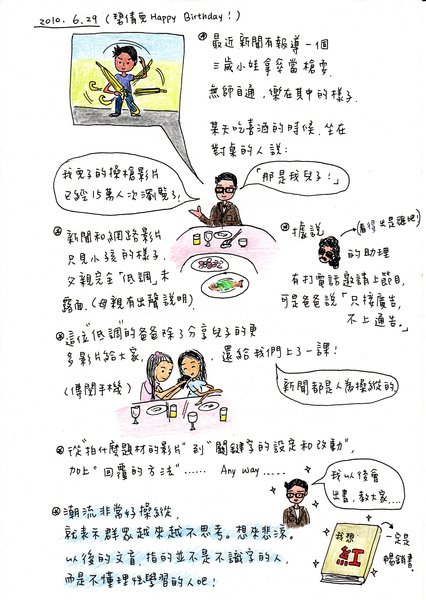 2010.6.29 (碧倩兒 Happy Birthday!)
最近新聞有報導一個
三歲小娃拿傘當槍耍,
無師自通,樂在其中的樣子.
某天吃喜酒的時候,坐在
對桌的人說:
「那是我兒子!」
我兒子的操槍影片
已經15萬人次瀏覽了!
新聞和網路影片
只見小孩的樣子,
父親完全「低調」未
露面.(母親有出聲說明).
據說
(看得出是誰吧!)
的助理
有打電話邀請上節目,
可是爸爸說「只接廣告,
不上通告。」
這位"低調"的爸爸除了分享兒子的更
多影片給大家, 還給我們上了一課!
(傳閱手機)
新聞都是人為操縱的
從"拍什麼題材的影片"到"關鍵字的設定和改動",
加上"回覆的方法"...... Any way.....
我以後會
出書,教大家....
潮流非常好操縱,
就表示群眾越來越不思考。想來悲涼。
以後的文盲,指的並不是不識字的人,
而是不懂理性學習的人吧!
我想
紅
一定是
暢銷書.